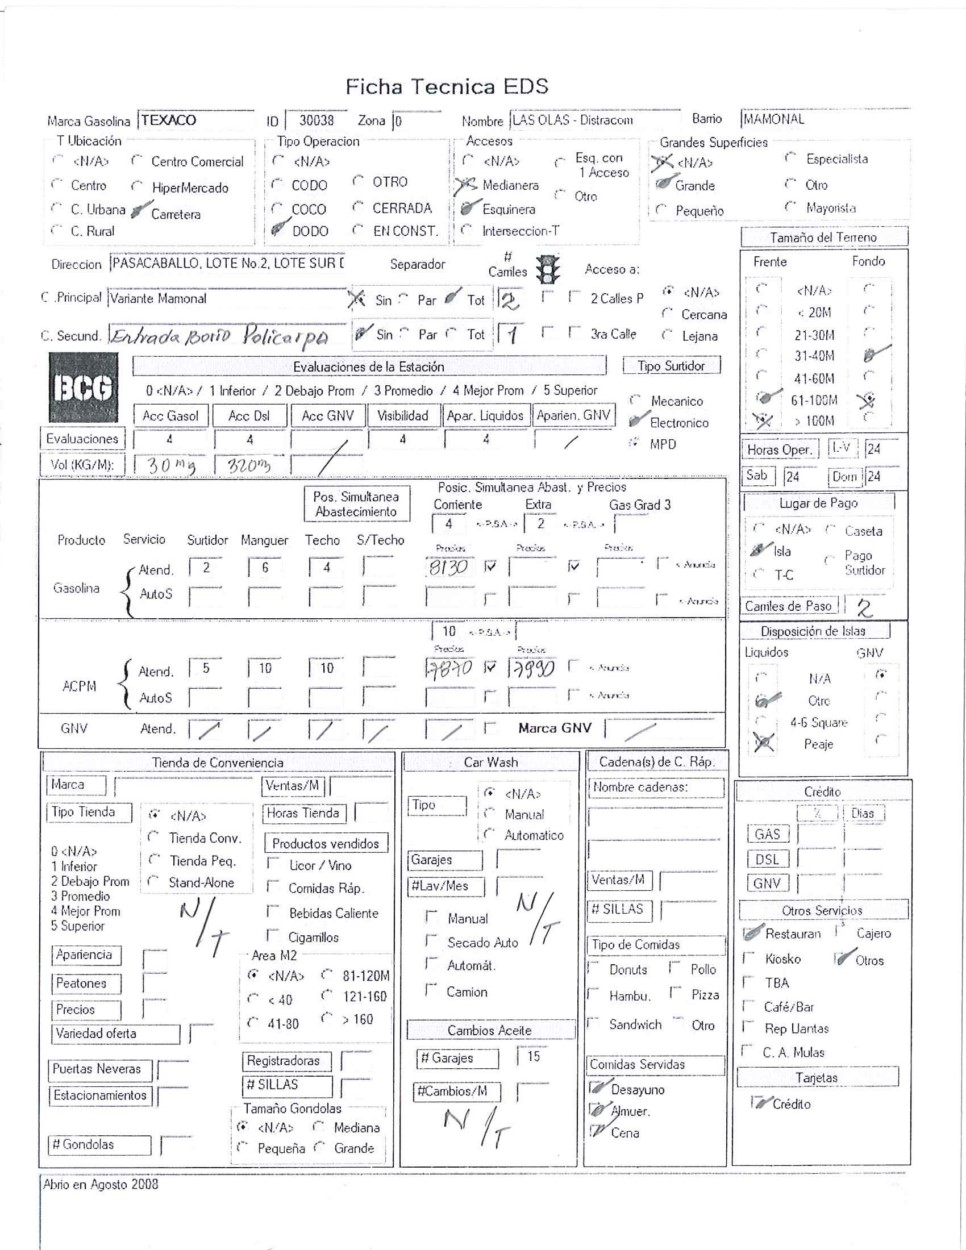 Ficha Tecnica EDS
Marca Gasolina TEXACO ID 30038 Zona 0 Nombre LAS OLAS - Distracom Barrio MAMONAL
T Ubicación Tipo Operacion Accesos Grandes Superficies
<N/A> Centro Comercial <N/A> <N/A> Esq. con 1 Acceso <N/A> Especialista
Centro HiperMercado CODO OTRO Medianera Otro Grande Otro
C. Urbana Carretera COCO CERRADA Esquinera Pequeño Mayorista
C. Rural DODO EN CONST. Interseccion-T
Tamaño del Terreno
Direccion PASACABALLO, LOTE No.2, LOTE SUR Separador # Carriles Acceso a:
C .Principal Variante Mamonal Sin Par Tot 2 2 Calles P <N/A>
Cercana
C. Secund. Entrada Borio Policarpa Sin Par Tot 1 3ra Calle Lejana
Frente Fondo
<N/A>
< 20M
21-30M
31-40M
41-60M
61-100M
> 100M
BCG
Evaluaciones de la Estación Tipo Surtidor
0 <N/A> / 1 Inferior / 2 Debajo Prom / 3 Promedio / 4 Mejor Prom / 5 Superior
Mecanico
Electronico
MPD
Acc Gasol Acc Dsl Acc GNV Visibilidad Apar. Liquidos Aparien. GNV
Evaluaciones 4 4 / 4 4 /
Vol (KG/M): 30 mg 320m /
Horas Oper. L-V 24
Sab 24 Dom 24
Pos. Simultanea Abastecimiento
Posic. Simultanea Abast. y Precios
Corriente Extra Gas Grad 3
4 <-P.S.A-> 2 <-P.S.A->
Producto Servicio Surtidor Manguer Techo S/Techo Precios Precios Precios
Gasolina Atend. 2 6 4 8130 < Anuncia
AutoS < Anuncia
10 <-P.S.A->
Precios Precios
ACPM Atend. 5 10 10 7870 7990 < Anuncia
AutoS < Anuncia
GNV Atend. / / / / / Marca GNV /
Lugar de Pago
<N/A> Caseta
Isla Pago Surtidor
T-C
Carriles de Paso 2
Disposición de Islas
Liquidos GNV
N/A
Otro
4-6 Square
Peaje
Tienda de Conveniencia
Marca Ventas/M
Tipo Tienda <N/A> Horas Tienda
Tienda Conv. Productos vendidos
0 <N/A>
1 Inferior Tienda Peq. Licor / Vino
2 Debajo Prom Stand-Alone Comidas Ráp.
3 Promedio
4 Mejor Prom N/T Bebidas Caliente
5 Superior Cigarrillos
Apariencia Area M2
Peatones <N/A> 81-120M
Precios < 40 121-160
Variedad oferta 41-80 > 160
Puertas Neveras Registradoras
Estacionamientos # SILLAS
Tamaño Gondolas
<N/A> Mediana
# Gondolas Pequeña Grande
Car Wash
Tipo <N/A>
Manual
Automatico
Garajes
#Lav/Mes
N/T
Manual
Secado Auto
Automát.
Camion
Cambios Aceite
# Garajes 15
#Cambios/M
N/T
Cadena(s) de C. Ráp.
Nombre cadenas:
Ventas/M
# SILLAS
Tipo de Comidas
Donuts Pollo
Hambu. Pizza
Sandwich Otro
Comidas Servidas
Desayuno
Almuer.
Cena
Crédito
% Dias
GAS
DSL
GNV
Otros Servicios
Restauran Cajero
Kiosko Otros
TBA
Café/Bar
Rep Llantas
C. A. Mulas
Tarjetas
Crédito
Abrio en Agosto 2008